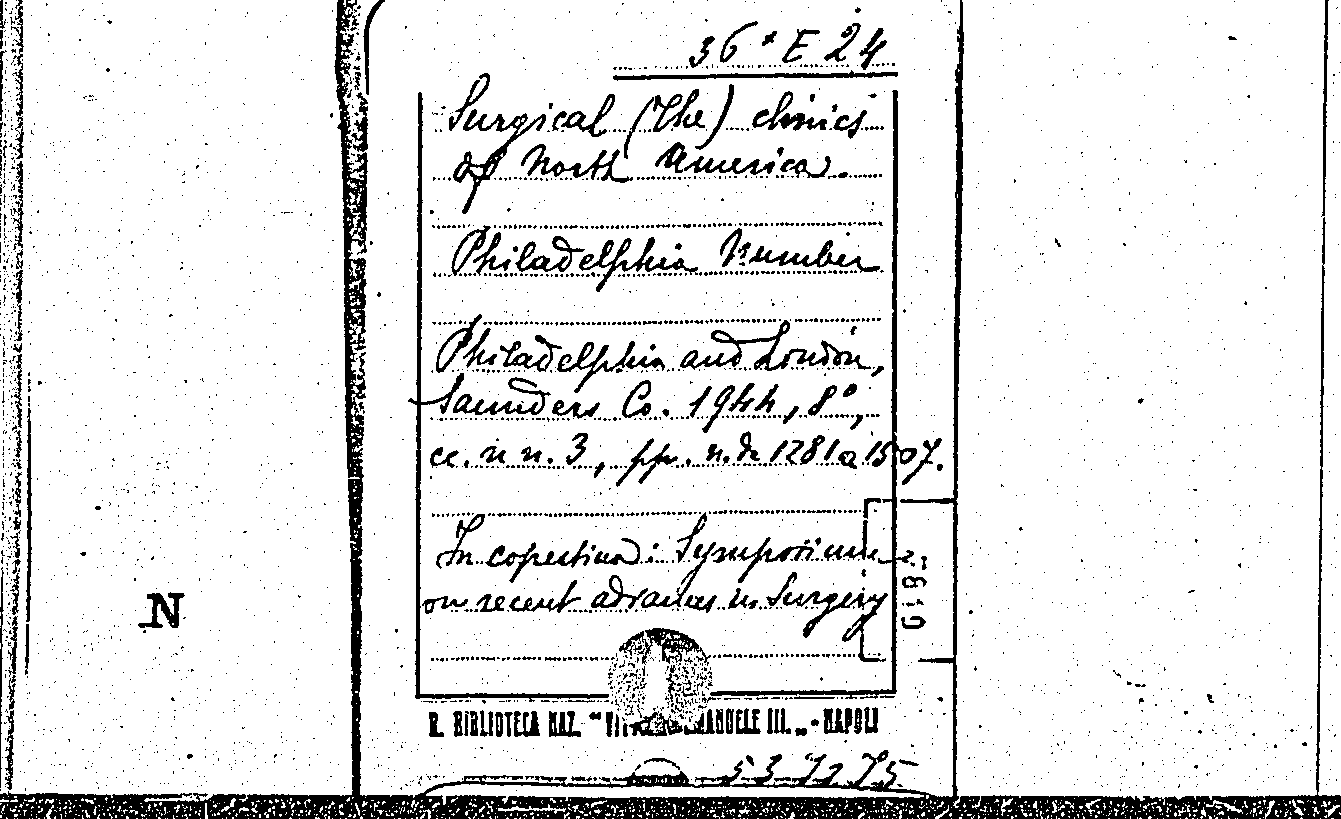 36* E 24
Surgical (The) clinics
of North America.
Philadelphia Number
Philadelphia and London,
Saunders Co. 1944, 8°,
cc. n n. 3, pp. n. da 1281 a 1507.
In copertina: Symposium
on recent advances in Surgery
N
R. BIBLIOTECA NAZ. "VITT EMANUELE III." - NAPOLI